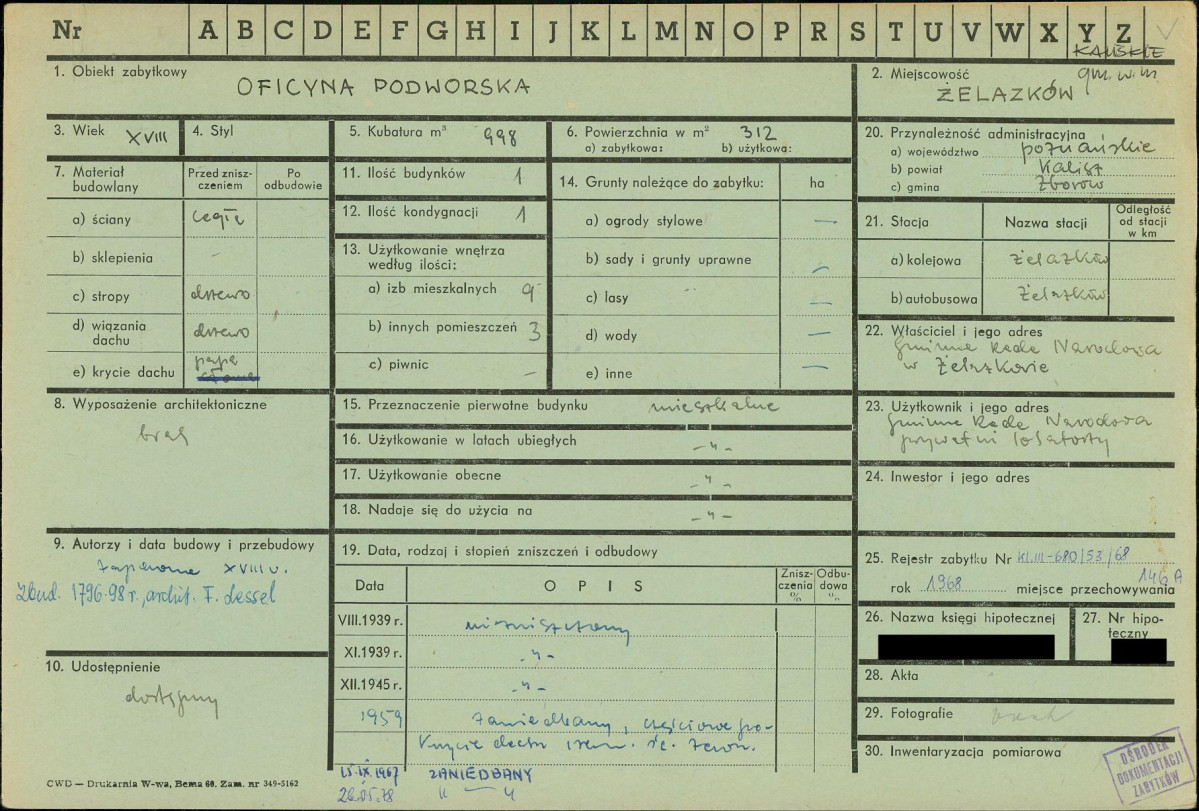 Nr A B C D E F G H I J K L M N O P R S T U V W X Y Z
KALISKIE
1. Obiekt zabytkowy
OFICYNA PODWORSKA
2. Miejscowość gm. w. m.
ŻELAZKÓW
3. Wiek XVIII
4. Styl
5. Kubatura m³ 998
6. Powierzchnia w m² 312
a) zabytkowa: b) użytkowa:
20. Przynależność administracyjna
a) województwo poznańskie
b) powiat Kalisz
c) gmina Zborów
7. Materiał budowlany
Przed zniszczeniem
Po odbudowie
a) ściany cegła
b) sklepienia -
c) stropy drzewo
d) wiązania dachu drzewo
e) krycie dachu papa
11. Ilość budynków 1
12. Ilość kondygnacji 1
13. Użytkowanie wnętrza według ilości:
a) izb mieszkalnych 9
b) innych pomieszczeń 3
c) piwnic -
14. Grunty należące do zabytku: ha
a) ogrody stylowe —
b) sady i grunty uprawne —
c) lasy —
d) wody —
e) inne —
21. Stacja Nazwa stacji Odległość od stacji w km
a) kolejowa Żelazków
b) autobusowa Żelazków
22. Właściciel i jego adres
Gminna Rada Narodowa
w Żelazkowie
8. Wyposażenie architektoniczne
brak
15. Przeznaczenie pierwotne budynku mieszkalne
16. Użytkowanie w latach ubiegłych -"-
17. Użytkowanie obecne -"-
18. Nadaje się do użycia na -"-
23. Użytkownik i jego adres
Gminna Rada Narodowa
prywatni lokatorzy
24. Inwestor i jego adres
9. Autorzy i data budowy i przebudowy
XVIII w.
Zbud. 1796-98 r., archit. F. Lessel
19. Data, rodzaj i stopień zniszczeń i odbudowy
Data OPIS Zniszczenia % Odbudowa %
VIII.1939 r. niezniszczony
XI.1939 r. -"-
XII.1945 r. -"-
1959 zaniedbany, częściowe po-
krycie dachu
15.IX.1967 ZANIEDBANY
26.05.78 " — "
25. Rejestr zabytku Nr Kl.III-680/53/68
rok 1968 miejsce przechowywania 146 A
26. Nazwa księgi hipotecznej
27. Nr hipoteczny
10. Udostępnienie
dostępny
28. Akta
29. Fotografie brak
30. Inwentaryzacja pomiarowa
OŚRODEK
DOKUMENTACJI
ZABYTKÓW
CWD — Drukarnia W-wa, Bema 60. Zam. nr 349-5162